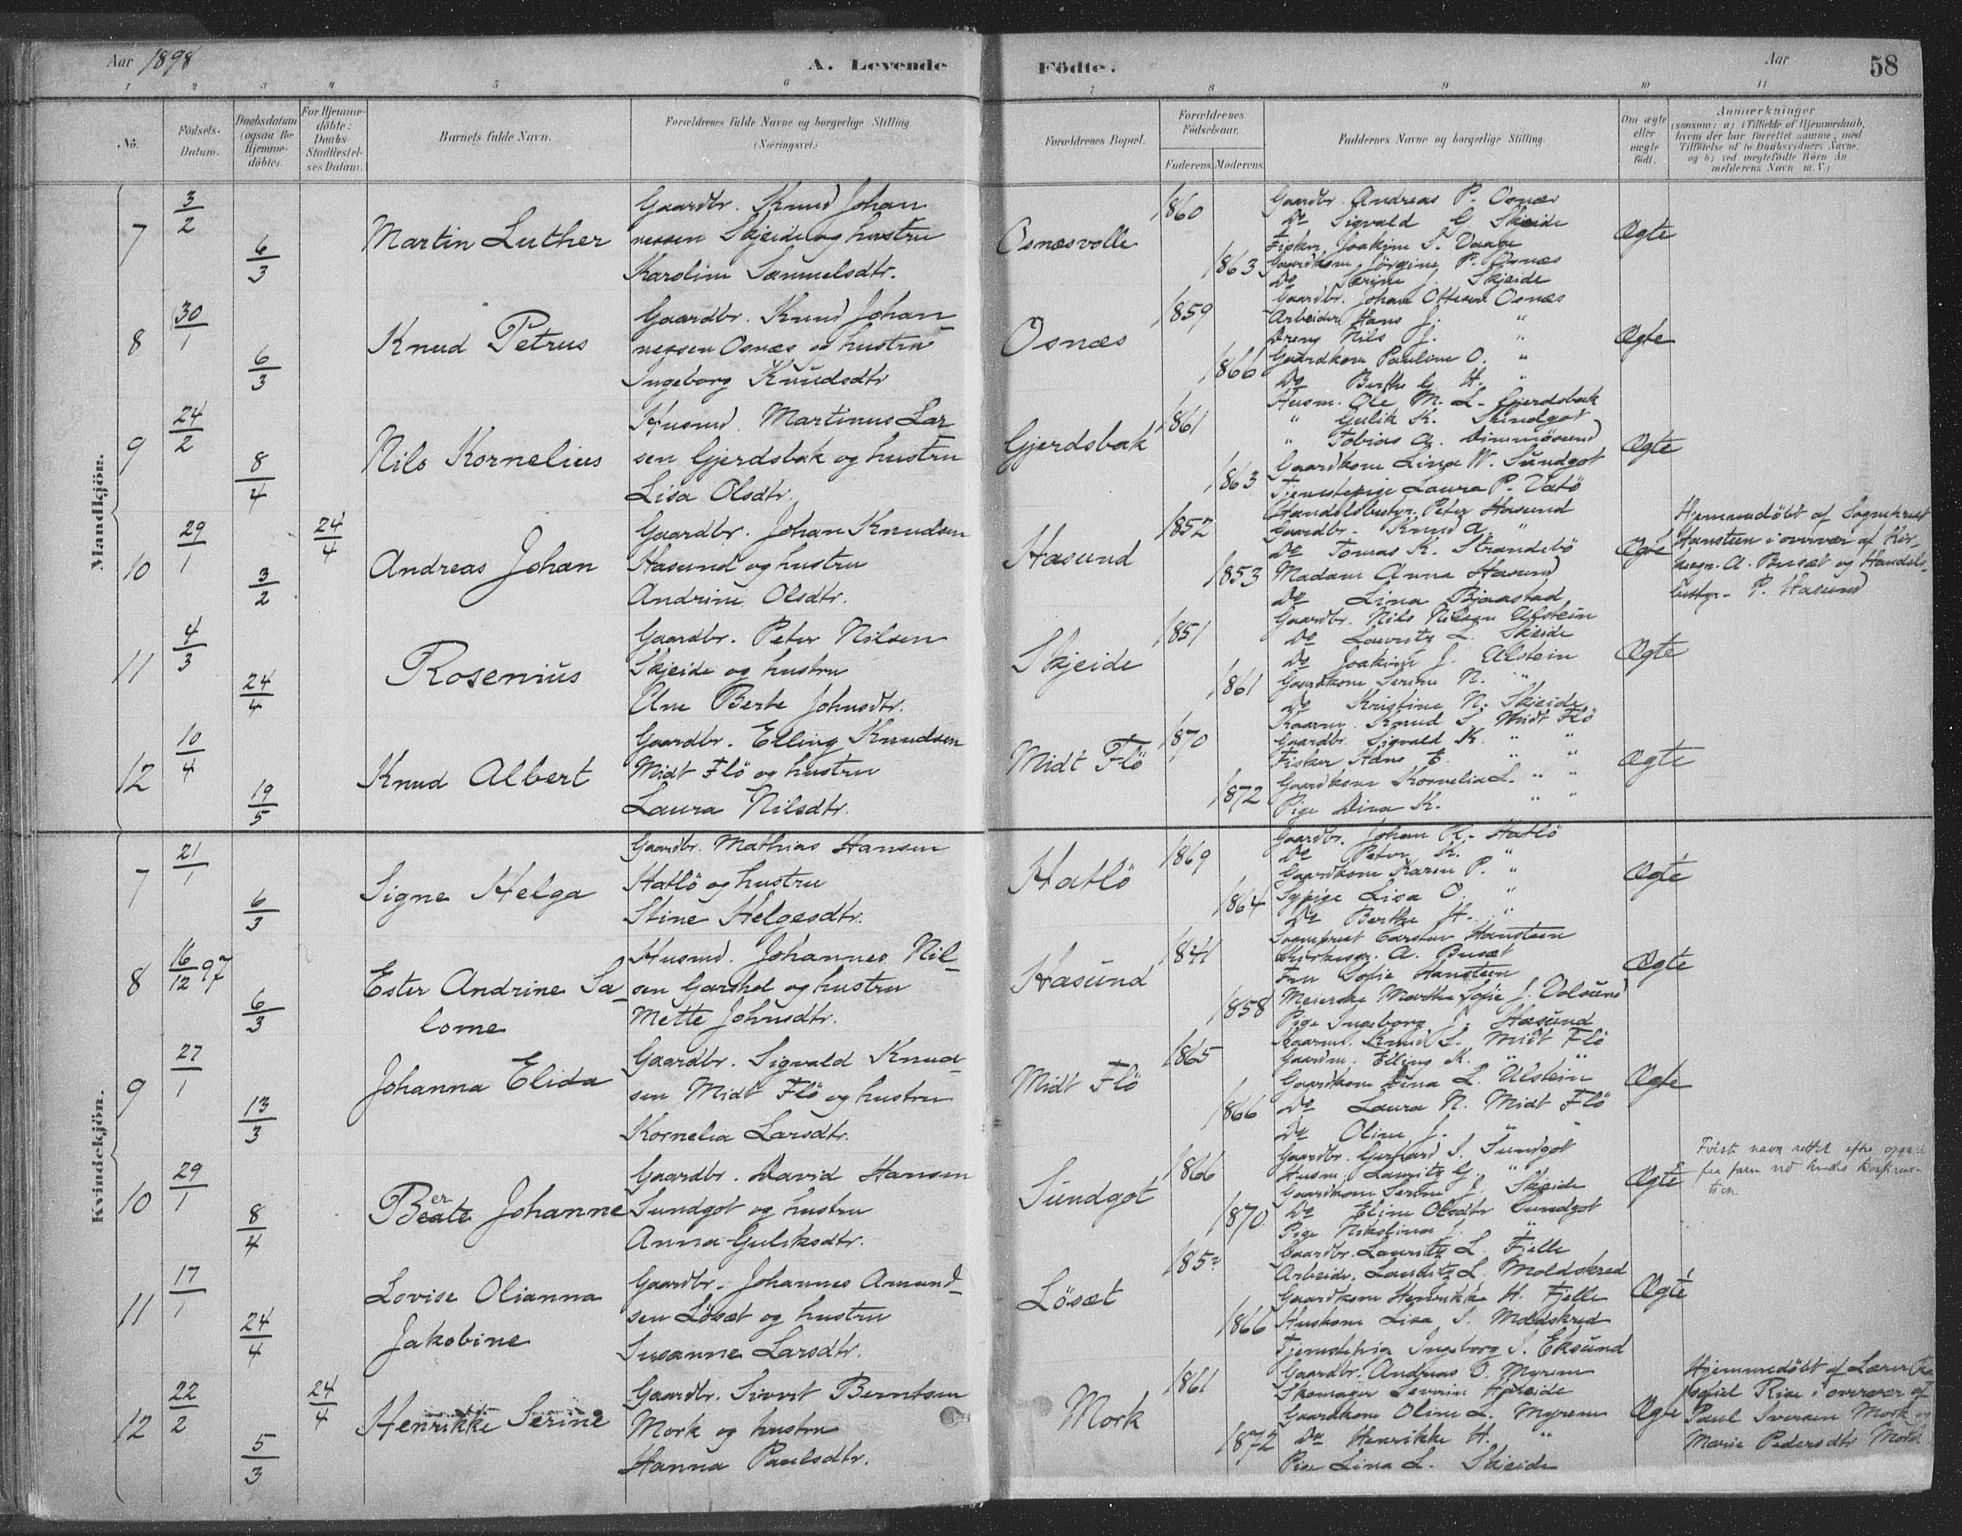 Aar 1898
A. Levende Födte.
Aar 58
1 2 3 4 5 6 7 8 9 10 11
No.
Födsels-Datum.
Daabsdatum (ogsaa for Hjemmedöbte).
For Hjemmedöbte: Daabs-Stadfæstelses Datum.
Barnets fulde Navn.
Forældrenes fulde Navne og borgerlige Stilling (Næringsvei.)
Forældrenes Bopæl.
Forældrenes Födselsaar.
Faderens. Moderens.
Faddernes Navne og borgerlige Stilling.
Om ægte eller uægte födt.
Anmærkninger
(saasom: a) i Tilfælde af Hjemmedaab, hvem der har forrettet samme, med Tilföielse af to Daabsvidners Navne, og b) ved uægtefödte Börn Anmelderens Navn m. V.)
Mandkjön.
7 3/2 6/3 Martin Luther
Gaardbr. Knud Johan
nessen Skjeide og hustru
Karoline Samuelsdtr.
Osnæsvolle 1860 1863
Gaardbr. Andreas P. Osnæs
Do Sigvald G Skeide
Fisker Joakim S. Vaage
Gaardkone Jörgine P. Osnæs
Do Serine J. Skjeide
Ægte
8 30/1 6/3 Knud Petrus
Gaardbr. Knud Johan
nessen Osnæs og hustru
Ingeborg Knudsdtr
Osnæs 1859 1866
Gaardbr. Johan Ottesen Osnæs
Arbeider Hans J. "
Dreng Nils J. "
Gaardkone Pauline O. "
Do Berthe G H. "
Ægte
9 24/2 8/4 Nils Kornelius
Husmd. Martinus Lar
sen Gjerdsbak og hustru
Lisa Olsdtr.
Gjerdsbak 1861 1863
Husm. Ole M. L. Gjerdsbak
" Gulik K. Sundgot
" Tobias A. Dimmösund
Gaardkone Lina W. Sundgot
Tjenestepige Laura P. Vatö
Ægte
10 29/1 3/2 24/4 Andreas Johan
Gaardbr. Johan Knudsen
Hasund og hustru
Andrine Olsdtr.
Hasund 1852 1853
Handelsbestyr. Peter Hasund
Gaardbr. Knud A. "
Do Tomas K. Strandebö
Madam Anna Hasund
Do Lina Bjaastad
Ægte
Hjemmedöbt af Sogneprest
Hansteen i overvær af Kir-
kesgr. A. Busæt og Handels-
bestyr. P. Hasund
11 4/3 24/4 Rosenius
Gaardbr. Peter Nilsen
Skjeide og hustru
Ane Berte Johnsdtr.
Skjeide 1851 1861
Gaardbr. Nils Nilsen Ulstein
Do Lauritz L. Skeide
Do Joakim J. Ulstein
Gaardkone Serine N. "
Do Kristine N. Skjeide
Ægte
12 10/4 19/5 Knud Albert
Gaardbr. Elling Knudsen
Midt Flö og hustru
Laura Nilsdtr.
Midt Flö 1870 1872
Kaarm. Knud S. Midt Flö
Gaardbr. Sigvald K. " "
Fisker Hans E. " "
Gaardkone Kornelia L. " "
Pige Dina K. " "
Ægte
Kvindekjön.
7 21/1 6/3 Signe Helga
Gaardbr. Mathias Hansen
Hatlö og hustru
Stine Helgesdtr.
Hatlö 1869 1864
Gaardbr. Johan K. Hatlö
Do Peter K. "
Gaardkone Karen P. "
Sypige Lisa O. "
Do Berthe H. "
Ægte
8 16/12 97 6/3 Ester Andrine Sa-
lome
Husmd. Johannes Nil-
sen Garshol og hustru
Mette Johnsdtr.
Hasund 1841 1858
Sogneprest Carsten Hansteen
Kirkesgr. A. Busæt
Fru Sofie Hansteen
Meierske Marthe Sofie J. Volsund
Pige Ingeborg J. Hasund
Ægte
9 27/1 13/3 Johanna Elida
Gaardbr. Sigvald Knud-
sen Midt Flö og hustru
Kornelia Larsdtr.
Midt Flö 1865 1866
Kaarm. Knud S. Midt Flö
Gaardm. Elling K. " "
Gaardkone Lina L. Ulstein
Do Laura N. Midt Flö
Do Oline J. " "
Ægte
10 29/1 8/4 Beate Johanne
er
Gaardbr. David Hansen
Sundgot og hustru
Anna Guliksdtr.
Sundgot 1866 1870
Gaardbr. Gerhard S. Sundgot
Husm. Lauritz G. "
Gaardkone Serine J. Skjeide
Do Eline Olsdtr Sundgot
Pige Nikoline J. "
Ægte
Förste navn rettet efter opgave
fra faren ved hendes konfirma-
tion.
11 17/1 24/4 Lovise Olianna
Jakobine
Gaardbr. Johannes Amund-
sen Lösæt og hustru
Susanne Larsdtr.
Lösæt 1852 1866
Gaardbr. Lauritz L. Fjelle
Arbeider Lauritz L. Moldskred
Gaardkone Henrikke H. Fjelle
Huskone Lisa S. Moldskred
Tjenestepige Ingeborg S. Eksund
Ægte
12 22/2 5/3 24/4 Henrikke Serine
Gaardbr. Sivert Berntsen
Mork og hustru
Hanna Paulsdtr.
Mork 1861 1872
Gaardbr. Andreas O. Myrene
Skomager Severin Skeide
Gaardkone Oline L. Myrene
Do Henrikke H. "
Pige Lina L. Skjeide
Ægte
Hjemmedöbt af Lærer
Rise i overvær af
Paul Iversen Mork og
Marie Pedersdtr Mork